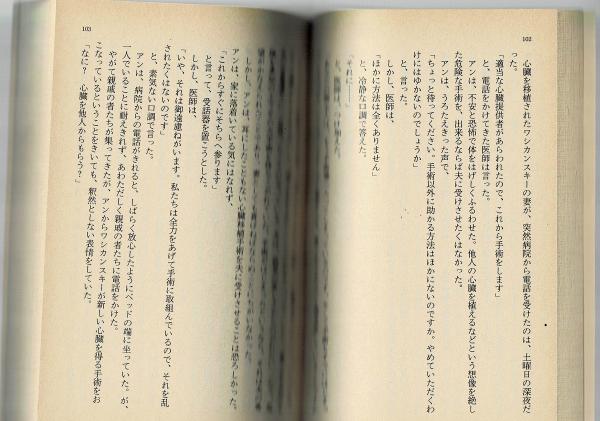 102
心臓を移植されたワシカンスキーの妻が、突然病院から電話を受けたのは、土曜日の深夜だ
った。
「適当な心臓提供者があらわれたので、これから手術をします」
と、電話をかけてきた医師は言った。
アンは、不安と恐怖で体をはげしくふるわせた。他人の心臓を植えるなどという想像を絶し
た危険な手術を、出来るならば夫に受けさせたくはなかった。
アンは、うろたえきった声で、
「ちょっと待ってください。手術以外に助かる方法はほかにないのですか。やめていただくわ
けにはゆかないのでしょうか」
と、言った。
しかし、医師は、
「ほかに方法は全くありません」
と、冷静な口調で答えた。
「それに――
103
しかし、アンは、耳にしたこともない心臓移植手術を夫に受けさせることは恐ろしかった。
アンは、家に落着いている気にはなれず、
「これからすぐにそちらへ参ります」
と言って、受話器を置こうとした。
しかし、医師は、
「いや、それは御遠慮ねがいます。私たちは全力をあげて手術に取組んでいるので、それを乱
されたくはないのです」
と、素気ない口調で言った。
アンは、病院からの電話がきれると、しばらく放心したようにベッドの端に坐っていた。が、
一人でいることは耐えきれず、あわただしく親戚の者たちに電話をかけた。
やがて親戚の者たちが集ってきたが、アンからワシカンスキーが新しい心臓を得る手術をお
こなっているということをきいても、釈然としない表情をしていた。
「なに? 心臓を他人からもらう?」